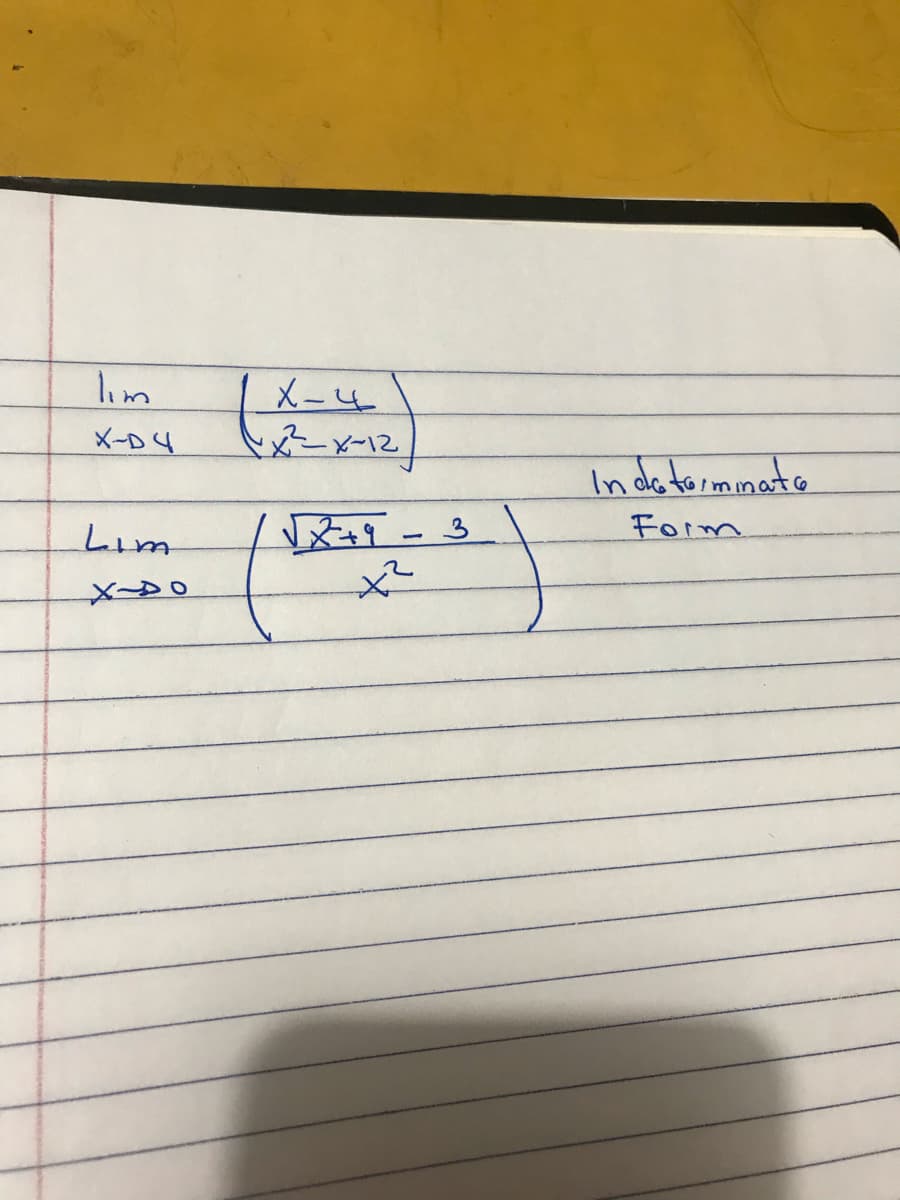 lim (x-4 / x²-x-12)
x→4
Indeterminate
Form
Lim (√x²+9 - 3 / x²)
x→0